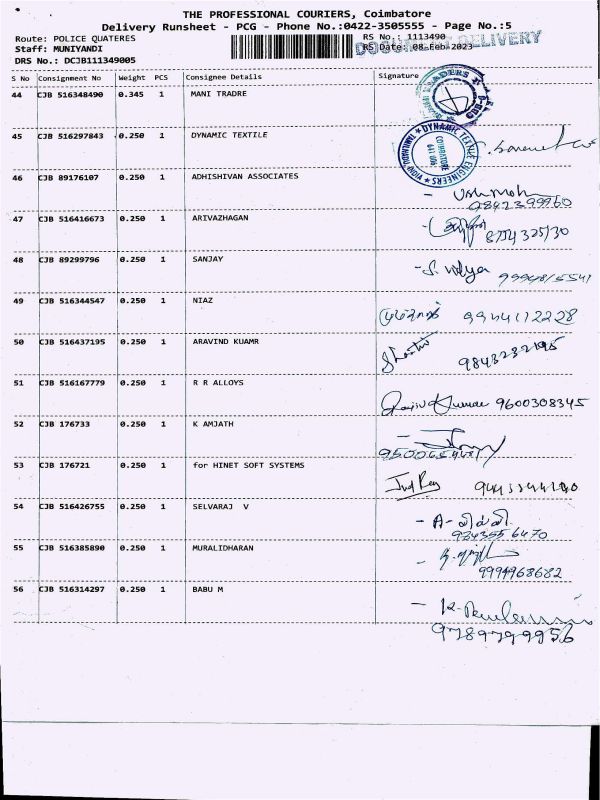 THE PROFESSIONAL COURIERS, Coimbatore
Delivery Runsheet - PCG - Phone No.:0422-3505555 - Page No.:5
Route: POLICE QUATERES
RS No.: 1113490
Staff: MUNIYANDI
RS Date: 08-Feb-2023
DOCUMENT DELIVERY
DRS No.: DCJB111349005
S No Consignment No Weight PCS Consignee Details Signature
44 CJB 516348490 0.345 1 MANI TRADRE
45 CJB 516297843 0.250 1 DYNAMIC TEXTILE
DYNAMIC TEXTILE ENGINEERS
COIMBATORE
46 CJB 89176107 0.250 1 ADHISHIVAN ASSOCIATES
9842399960
47 CJB 516416673 0.250 1 ARIVAZHAGAN
8754325130
48 CJB 89299796 0.250 1 SANJAY
S. Vidya
49 CJB 516344547 0.250 1 NIAZ
9944112228
50 CJB 516437195 0.250 1 ARAVIND KUAMR
51 CJB 516167779 0.250 1 R R ALLOYS
Kumar 9600308345
52 CJB 176733 0.250 1 K AMJATH
53 CJB 176721 0.250 1 for HINET SOFT SYSTEMS
54 CJB 516426755 0.250 1 SELVARAJ V
55 CJB 516385890 0.250 1 MURALIDHARAN
9994968682
56 CJB 516314297 0.250 1 BABU M
9789799956